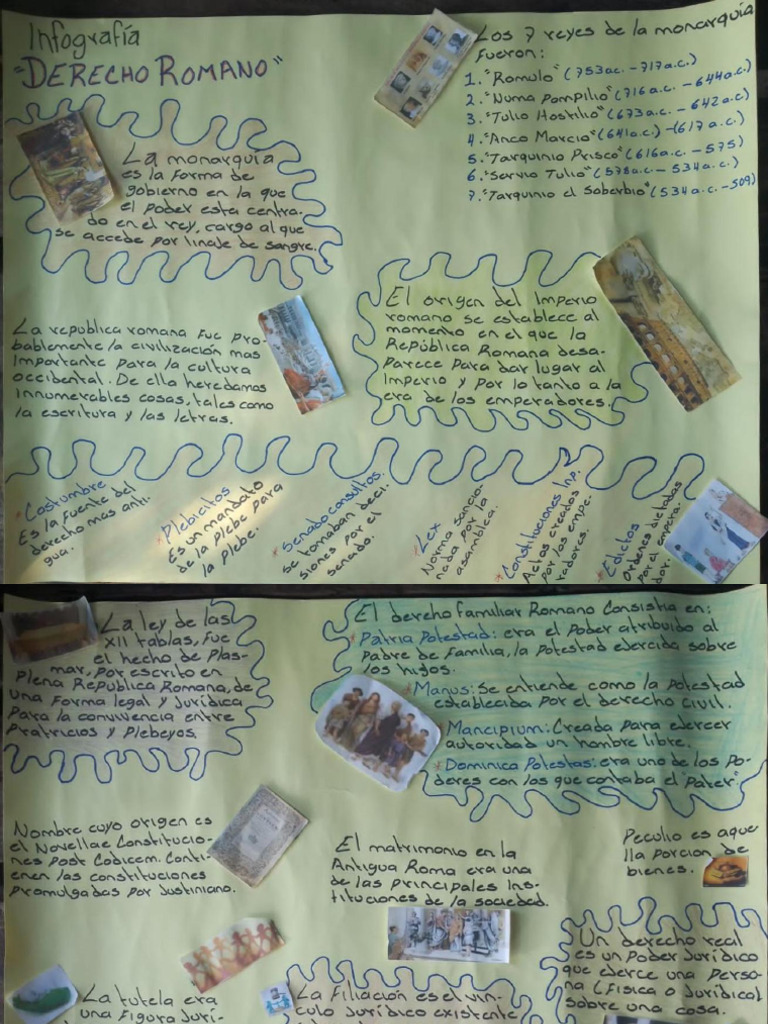 Infografía
"DERECHO ROMANO"
La monarquía
es la forma de
gobierno en la que
el poder esta centra-
do en el rey, cargo al que
se accede por linaje de sangre.
Los 7 reyes de la monarquía
fueron:
1. "Romulo" (753a.c. - 717a.c.)
2. "Numa Pompilio" (716a.c. - 644a.c.)
3. "Tulio Hostilio" (673a.c. - 642a.c.)
4. "Anco Marcio" (641a.c.) - (617a.c.)
5. "Tarquinio Prisco" (616a.c. - 575)
6. "Servio Tulio" (578a.c. - 534a.c.)
7. "Tarquinio el Soberbio" (534a.c. - 509)
La republica romana fue pro-
bablemente la civilización mas
importante para la cultura
occidental. De ella heredamos
innumerables cosas, tales como
la escritura y las letras.
El origen del Imperio
romano se establece al
momento en el que la
República Romana desa-
parece para dar lugar al
Imperio y por lo tanto a la
era de los emperadores.
* Costumbre
Es la fuente del
derecho mas anti-
gua.
* Plebicitos
Es un mandato
de la plebe para
la plebe.
* Senado consultos.
se tomaban deci-
siones por el
senado.
* Lex
Norma sancio-
nada por la
asamblica.
* Constituciones Inp.
Actos creados
por los empe-
radores.
* Edictos
Ordenes dictadas
por el empera-
dor.
La ley de las
XII tablas, fue
el hecho de plas-
mar, por escrito en
plena República Romana, de
una forma legal y Jurídica
para la convivencia entre
Pratricios y Plebeyos.
El derecho familiar Romano Consistia en:
* Patria Potestad: era el poder atribuido al
Padre de familia, la potestad ejercida sobre
los hijos.
* Manus: Se entiende como la potestad
establecida por el derecho civil.
* Mancipium: Creada para ejercer
autoridad un hombre libre.
* Dominica Potestas: era uno de los po-
deres con los que contaba el "pater".
Nombre cuyo origen es
el Novellae Constitucio-
nes post Codicem. Conti-
enen las constituciones
promulgadas por Justiniano.
El matrimonio en la
Antigua Roma era una
de las principales Ins-
tituciones de la sociedad.
Peculio es aque
lla porcion de
bienes.
La tutela era
una figura Jurí-
La filiación es el vin-
culo Jurídico existente
Un derecho real
es un poder Jurídico
que ejerce una perso-
na (Fisica o Jurídica)
sobre una cosa.